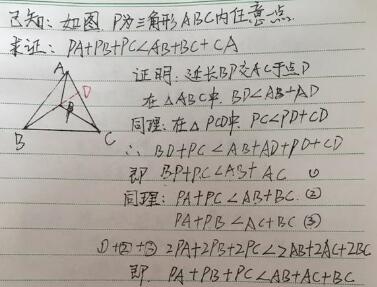 已知：如图，P为三角形ABC内任意点
求证：PA+PB+PC<AB+BC+CA
A
D
P
B
C
证明：延长BP交AC于点D
在△ABC中，BD<AB+AD
同理：在△PCD中，PC<PD+CD
∴ BD+PC<AB+AD+PD+CD
即 BP+PC<AB+AC ①
同理：PA+PC<AB+BC ②
PA+PB<AC+BC ③
①+②+③ 2PA+2PB+2PC<2AB+2AC+2BC
即 PA+PB+PC<AB+AC+BC